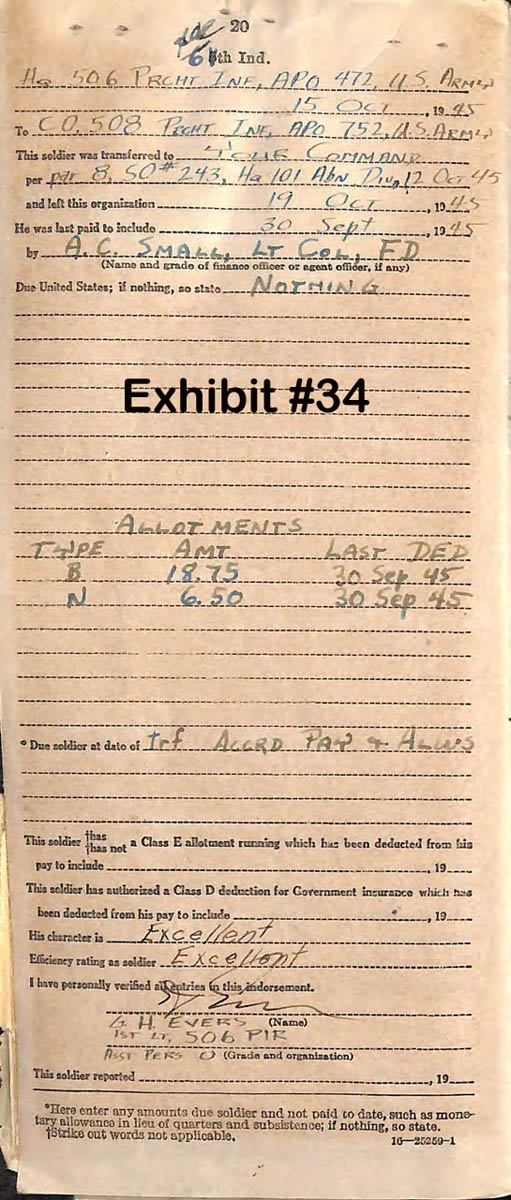 20
6th Ind.
Hq 506 PRCHT INF, APO 472, U.S. ARMY
15 Oct, 1945
To CO, 508 PRCHT INF, APO 752, U.S. ARMY
This soldier was transferred to COMMAND
per par 8, SO #243, Hq 101 Abn Div, 12 Oct 45
and left this organization 19 Oct, 1945
He was last paid to include 30 Sept, 1945
by A.C. SMALL, LT COL, FD
(Name and grade of finance officer or agent officer, if any)
Due United States; if nothing, so state NOTHING
Exhibit #34
ALLOTMENTS
TYPE AMT LAST DED
B 18.75 30 Sep 45
N 6.50 30 Sep 45
*Due soldier at date of trf ACCRD PAY & ALLWS
This soldier †has †has not a Class E allotment running which has been deducted from his
pay to include , 19
This soldier has authorized a Class D deduction for Government insurance which has
been deducted from his pay to include , 19
His character is Excellent
Efficiency rating as soldier Excellent
I have personally verified all entries in this indorsement.
G. H. EVERS (Name)
1ST LT, 506 PIR
ASST PERS O (Grade and organization)
This soldier reported , 19
*Here enter any amounts due soldier and not paid to date, such as mone-
tary allowance in lieu of quarters and subsistence; if nothing, so state.
†Strike out words not applicable.
16—25259-1